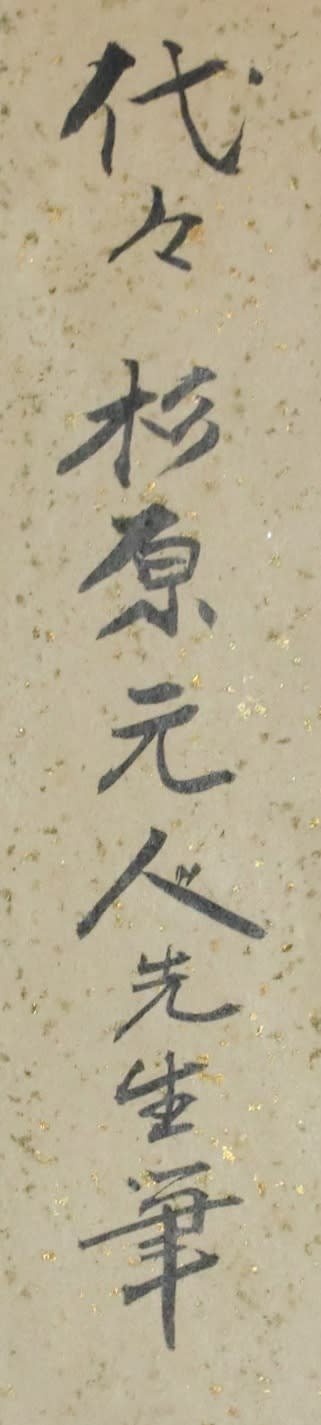 代々 杉原元人先生筆